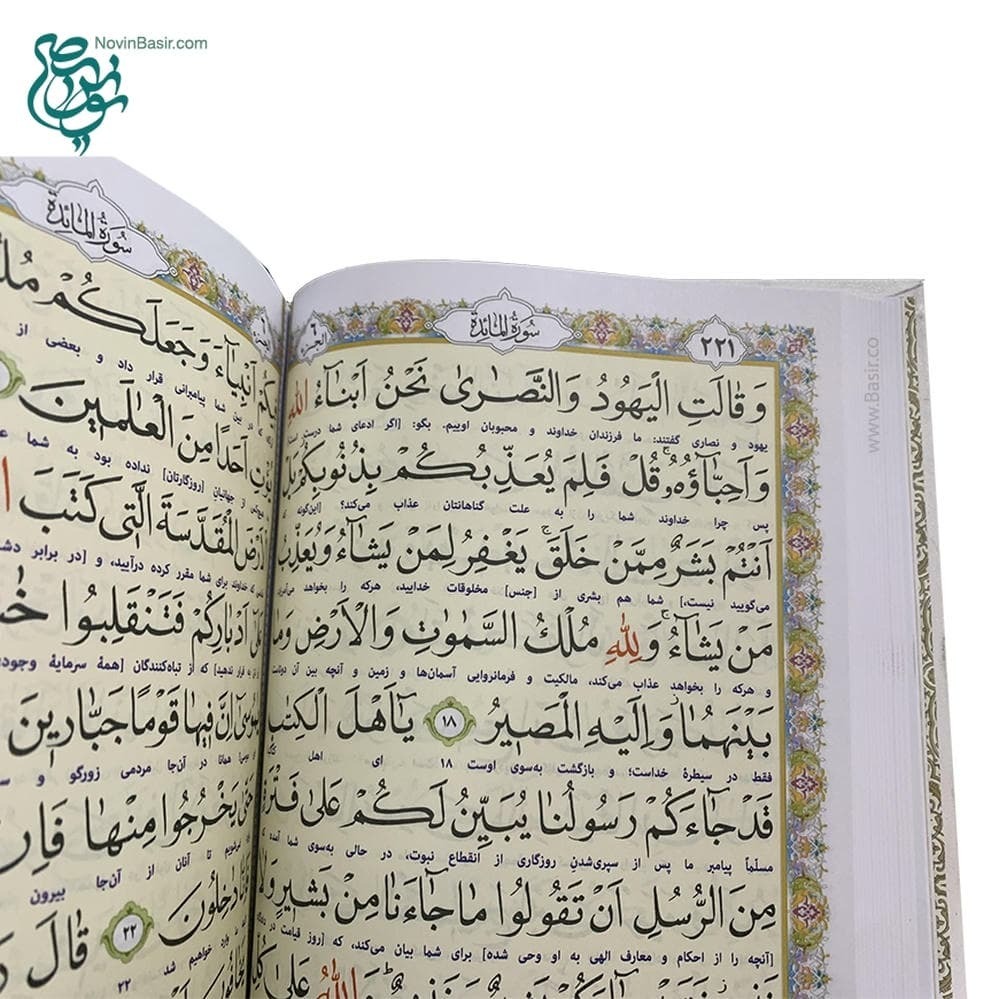 NovinBasir.com
سُورَةُ الْمَائِدَة
٢٢١
سُورَةُ الْمَائِدَة
الجزء ٦
وَ قَالَتِ الْيَهُودُ وَالنَّصَارىٰ نَحْنُ اَبْنَاءُ اللهِ
یهود و نصاری گفتند: ما فرزندان خداوند و محبوبان اوییم. بگو: [اگر ادعای شما درست است]
وَ اَحِبَّاؤُهُ قُلْ فَلِمَ يُعَذِّبُكُمْ بِذُنُوبِكُمْ بَلْ
پس چرا خداوند شما را به علت گناهانتان عذاب می‌کند؟ [این‌گونه که
اَنْتُمْ بَشَرٌ مِمَّنْ خَلَقَ يَغْفِرُ لِمَنْ يَشَاءُ وَ يُعَذِّبُ
می‌گویید نیست،] شما هم بشری از [جنس] مخلوقات خدایید، هرکه را بخواهد می‌آمرزد
مَنْ يَشَاءُ وَ لِلّٰهِ مُلْكُ السَّمٰوَاتِ وَالْاَرْضِ وَمَا
و هرکه را بخواهد عذاب می‌کند، مالکیت و فرمانروایی آسمان‌ها و زمین و آنچه بین آن دوست
بَيْنَهُمَا وَ اِلَيْهِ الْمَصِيرُ ١٨ يَا اَهْلَ الْكِتَابِ
فقط در سیطرهٔ خداست؛ و بازگشت به‌سوی اوست ١٨ ای اهل کتاب
قَدْ جَاءَكُمْ رَسُولُنَا يُبَيِّنُ لَكُمْ عَلىٰ فَتْرَةٍ
مسلّماً پیامبر ما پس از سپری‌شدن روزگاری از انقطاع نبوت، در حالی به‌سوی شما آمده که
مِنَ الرُّسُلِ اَنْ تَقُولُوا مَا جَاءَنَا مِنْ بَشِيرٍ وَلَا
[آنچه را از احکام و معارف الهی به او وحی شده] برای شما بیان می‌کند، که [روز قیامت در دادگاه
اللهُ عَلىٰ كُلِّ
وَ جَعَلَكُمْ
اَنْبِيَاءَ
در بین شما پیامبرانی قرار داد و بعضی از
اَحَدًا مِنَ الْعَالَمِينَ
از جهانیانِ [روزگارتان] نداده بود به شما
الْمُقَدَّسَةَ الَّتِي كَتَبَ
خداوند برای شما مقرر کرده درآیید، و [در برابر
اَدْبَارِكُمْ فَتَنْقَلِبُوا
که از تباه‌کنندگان [همهٔ سرمایهٔ وجودی
اِنَّ فِيهَا قَوْمًا جَبَّارِينَ
همانا در آن‌جا مردمی زورگو و
حَتّىٰ يَخْرُجُوا مِنْهَا فَاِنْ
تا آنان از آن‌جا بیرون
دَاخِلُونَ ٢٢ قَالَ
وارد خواهیم شد ٢٢
www.Basir.co